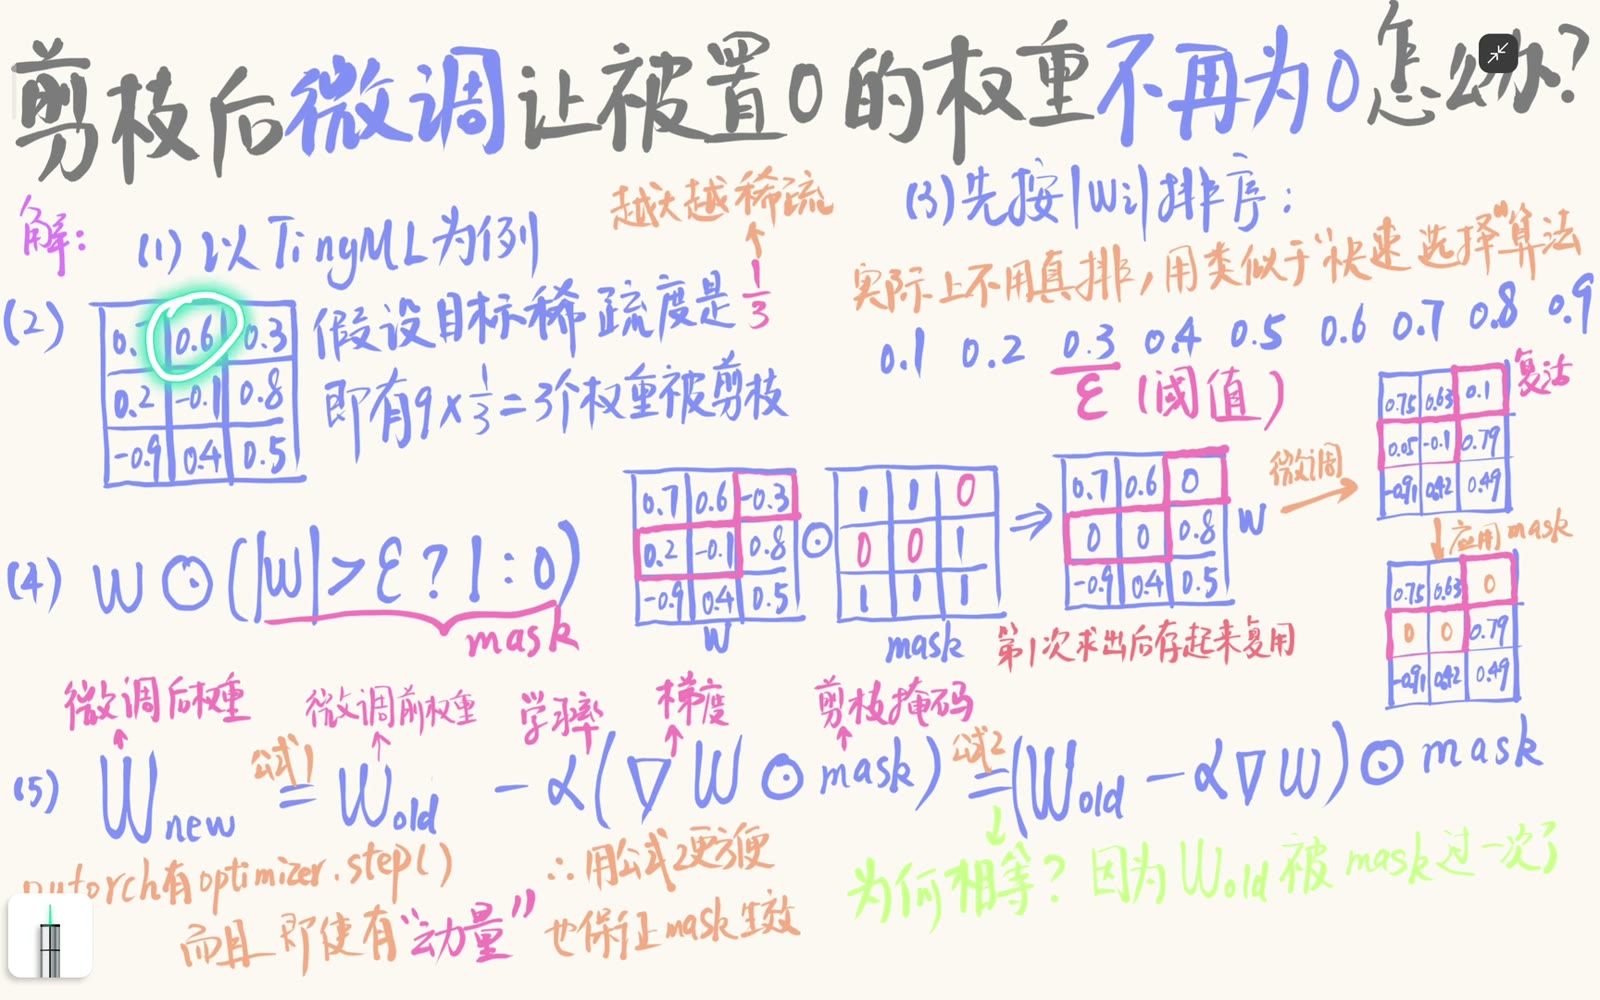 剪枝后微调让被置0的权重不再为0怎么办?
解:
(1) 以TinyML为例
越大越稀疏
(2)
0.6 0.3
0.2 -0.1 0.8
-0.9 0.4 0.5
假设目标稀疏度是1/3
即有9×1/3=3个权重被剪枝
(3)先按|Wi|排序:
实际上不用真排,用类似于"快速选择"算法
0.1 0.2 0.3 0.4 0.5 0.6 0.7 0.8 0.9
ε(阈值)
(4) W⊙(|W|>ε?1:0)
mask
0.7 0.6 -0.3
0.2 -0.1 0.8
-0.9 0.4 0.5
W
⊙
1 1 0
0 0 1
1 1 1
mask
⇒
0.7 0.6 0
0 0 0.8
-0.9 0.4 0.5
W
第1次求出后存起来复用
微调
0.75 0.63 0.1
0.05 -0.1 0.79
-0.91 0.42 0.49
复活
应用mask
0.75 0.63 0
0 0 0.79
-0.91 0.42 0.49
微调后权重 微调前权重 学习率 梯度 剪枝掩码
公式1 公式2
(5) Wnew = Wold - α(∇W⊙mask) = (Wold - α∇W)⊙mask
pytorch有optimizer.step() ∴用公式2更方便
而且即使有"动量"也保证mask生效
为何相等?因为Wold被mask过一次了